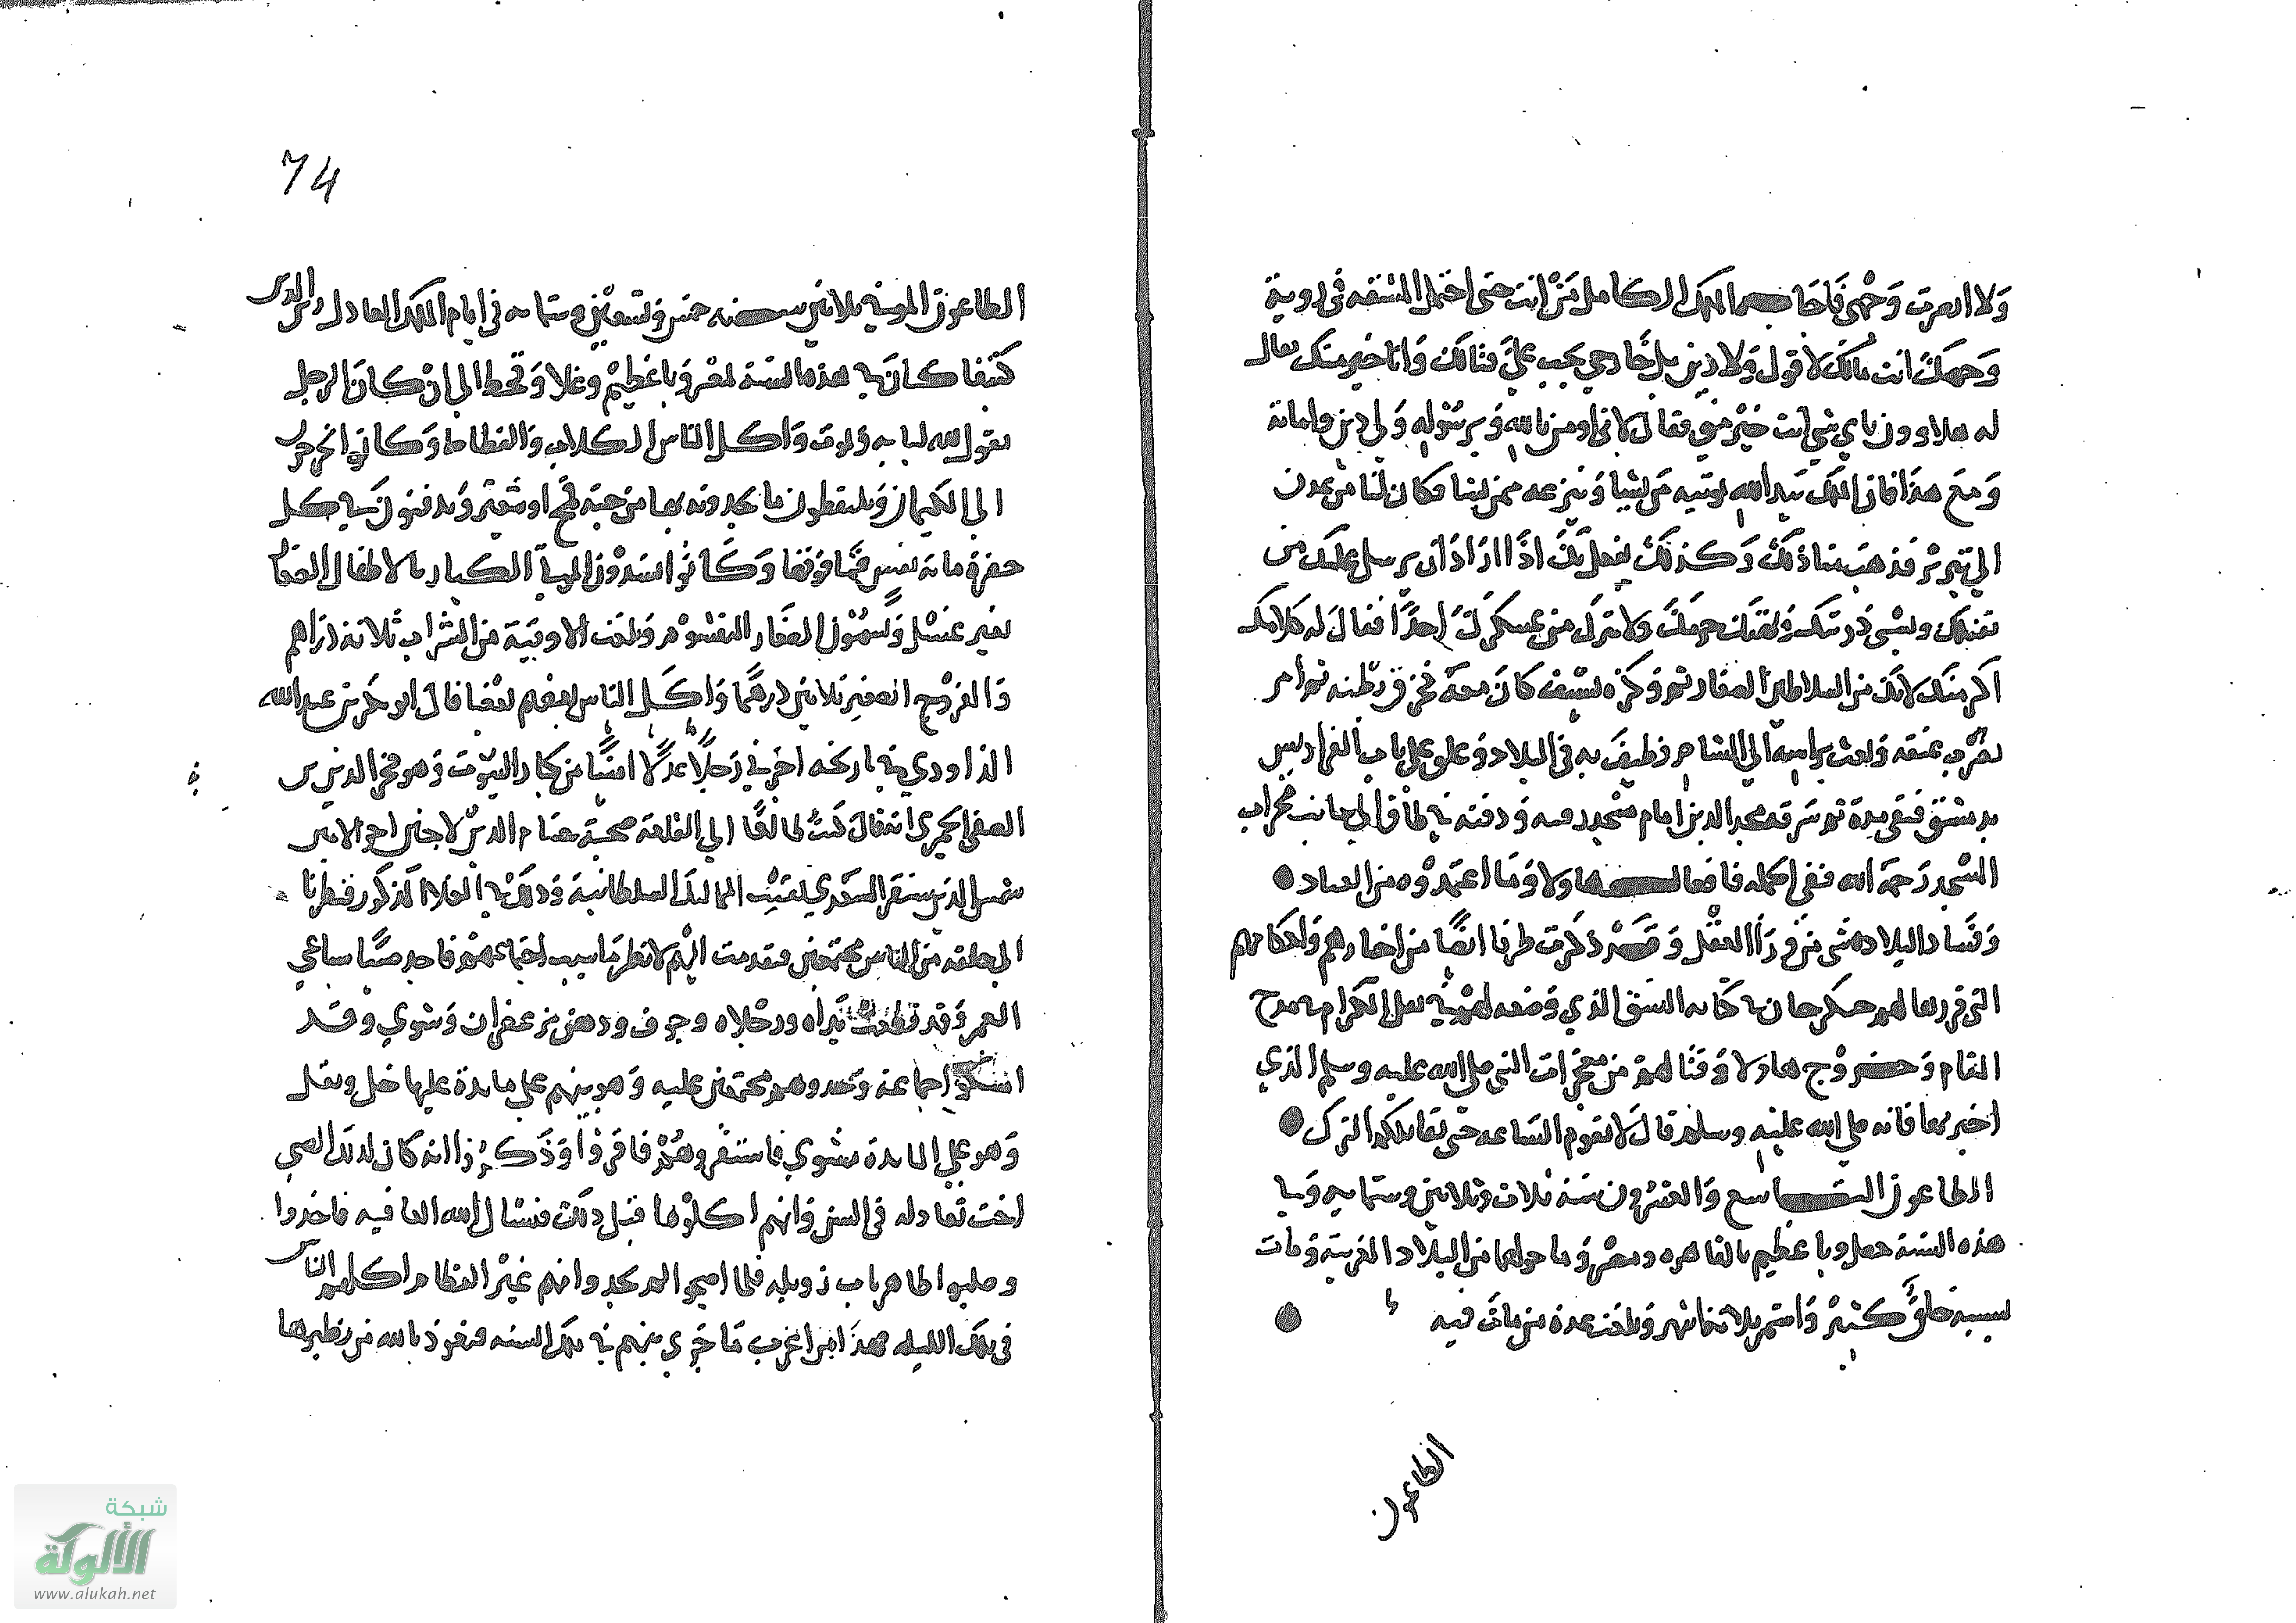 ولا ابصرت وجهى فاجابه الملك الكامل من انت حتى احتمل المشقه فى روية
وجهك انت مالك لا قول ولا دين بل خارجي يجب علي قتالك وانا خير منك فقال
له هلاوون باي شي انت خير منى فقال لاني اومن بالله وبرسوله ولي دين وامانة
ومع هذا فان الملك بيد الله يوتيه من يشا وينزعه ممن يشا فكان لنا من عدن
الى تبريز فذهب منا ذلك وكذلك يفعل بك اذا اراد ان يرسل عليك من
يقتلك ويسبى ذريتك ولا يترك من عسكرك احدا فقال له كلامك
اكبر منك لانك من السلاطين الصغار ثم وكزه بسيف كان معه فخرق بطنه ثم امر
بضرب عنقه وبعث براسه الى الشام فطيف به فى البلاد وعلق على باب الفراديس
بدمشق فبقى مدة ثم سرقه مجد الدين امام مسجد ودفنه في طاق الى جانب محراب
المسجد رحمه الله فهذا افعال هاولا وما اعتمدوه من العباد
وفساد البلاد شى من ورا العقل وقد ذكرت طرفا ايضا من اخبارهم واحكامهم
التى قررها لهم جنكزجان في كتابه الذي وضعه لهم في نقل الكرام مدح
المقام وخروج هاولا وقتالهم من معجزات النبى صلى الله عليه وسلم الذي
اخبر بها فانه صلى الله عليه وسلم قال لا تقوم الساعه حتى تقاتلكم الترك
الطاعون التاسع والعشرون سنة ثلاث وثلاثين وستمايه وفي
هذه السنة حصل وبا عظيم بالقاهره ومصر وما حولها من البلاد الغربية ومات
بسببه خلق كثير واستمر ثلاثة اشهر وبلغت عدة من مات فيه
الطاعون
74
الطاعون الموفي ثلاثين سنه خمس وتسعين وستمايه فى ايام الملك العادل زين الدين
كتبغا كان في هذه السنة بمصر وبا عظيم وغلا وقحط الى ان كان الرجل
يقول لله لبابه ويموت واكل الناس الكلاب والقطاط وكانوا يخرجون
الى الكيمان ويلتقطون ما يجدونه بها من حبة قمح او شعير ويدفنون في كل
حفرة مايه نفس فما فوقها وكانوا يسدون الميتا الكبار بالاطفال الصغار
بغير غسل ويسمون الصغار البقشوم وبلغت الاوقية من الشراب ثلاثة دراهم
والفروج الصغير ثلاثين درهما واكل الناس بعضهم بعضا قال ابو بكر بن عبد الله
الداودي في تاريخه اخبرني رجلا عدلا امينا من كبار البيوت وهو فخر الدين بن
الصفى البحري انه قال كنت طالعا الى القلعة صحبة حسام الدين لاجين اخو الامير
شمس الدين سنقر السعدي نقيب المماليك السلطانية وذلك في الغلا المذكور فنظرنا
الى حلقه من الناس مجتمعين فتقدمت اليهم لانظر ما سبب اجتماعهم فاجد صبيا سباعي
العمر وقد قطعت يداه ورجلاه وجوف ودهن بزعفران وشوي وقد
امسكوا جماعة وجدوهم مجتمعين عليه وهو بينهم على مايدة عليها خل وبقل
وهو على المايدة مشوي فاستقروهم فاقروا وذكروا انه كان لذلك الصبي
اخت تعادله فى السن وانهم اكلوها قبل ذلك فنسال الله العافيه فاخذوا
وصلبوا ظاهر باب زويله فلما اصبحوا لم يجدوا منهم غير العظام اكلهم الناس
فى تلك الليله فهذا من اغرب ما جرى منهم في تلك السنه فنعوذ بالله من نظيرها
شبكة
الألوكة
www.alukah.net